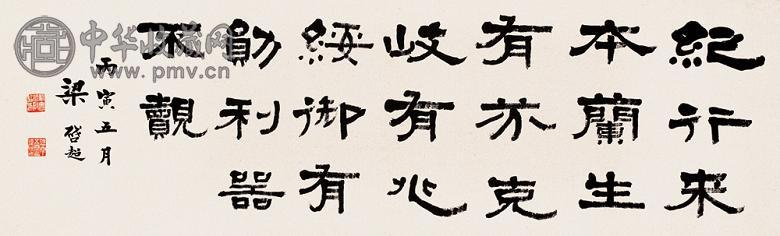 紀行来
本蘭生
有亦克
岐有兆
綏御有
勛利器
不覿
丙寅五月
梁啓超
中华收藏网
www.pmv.cn